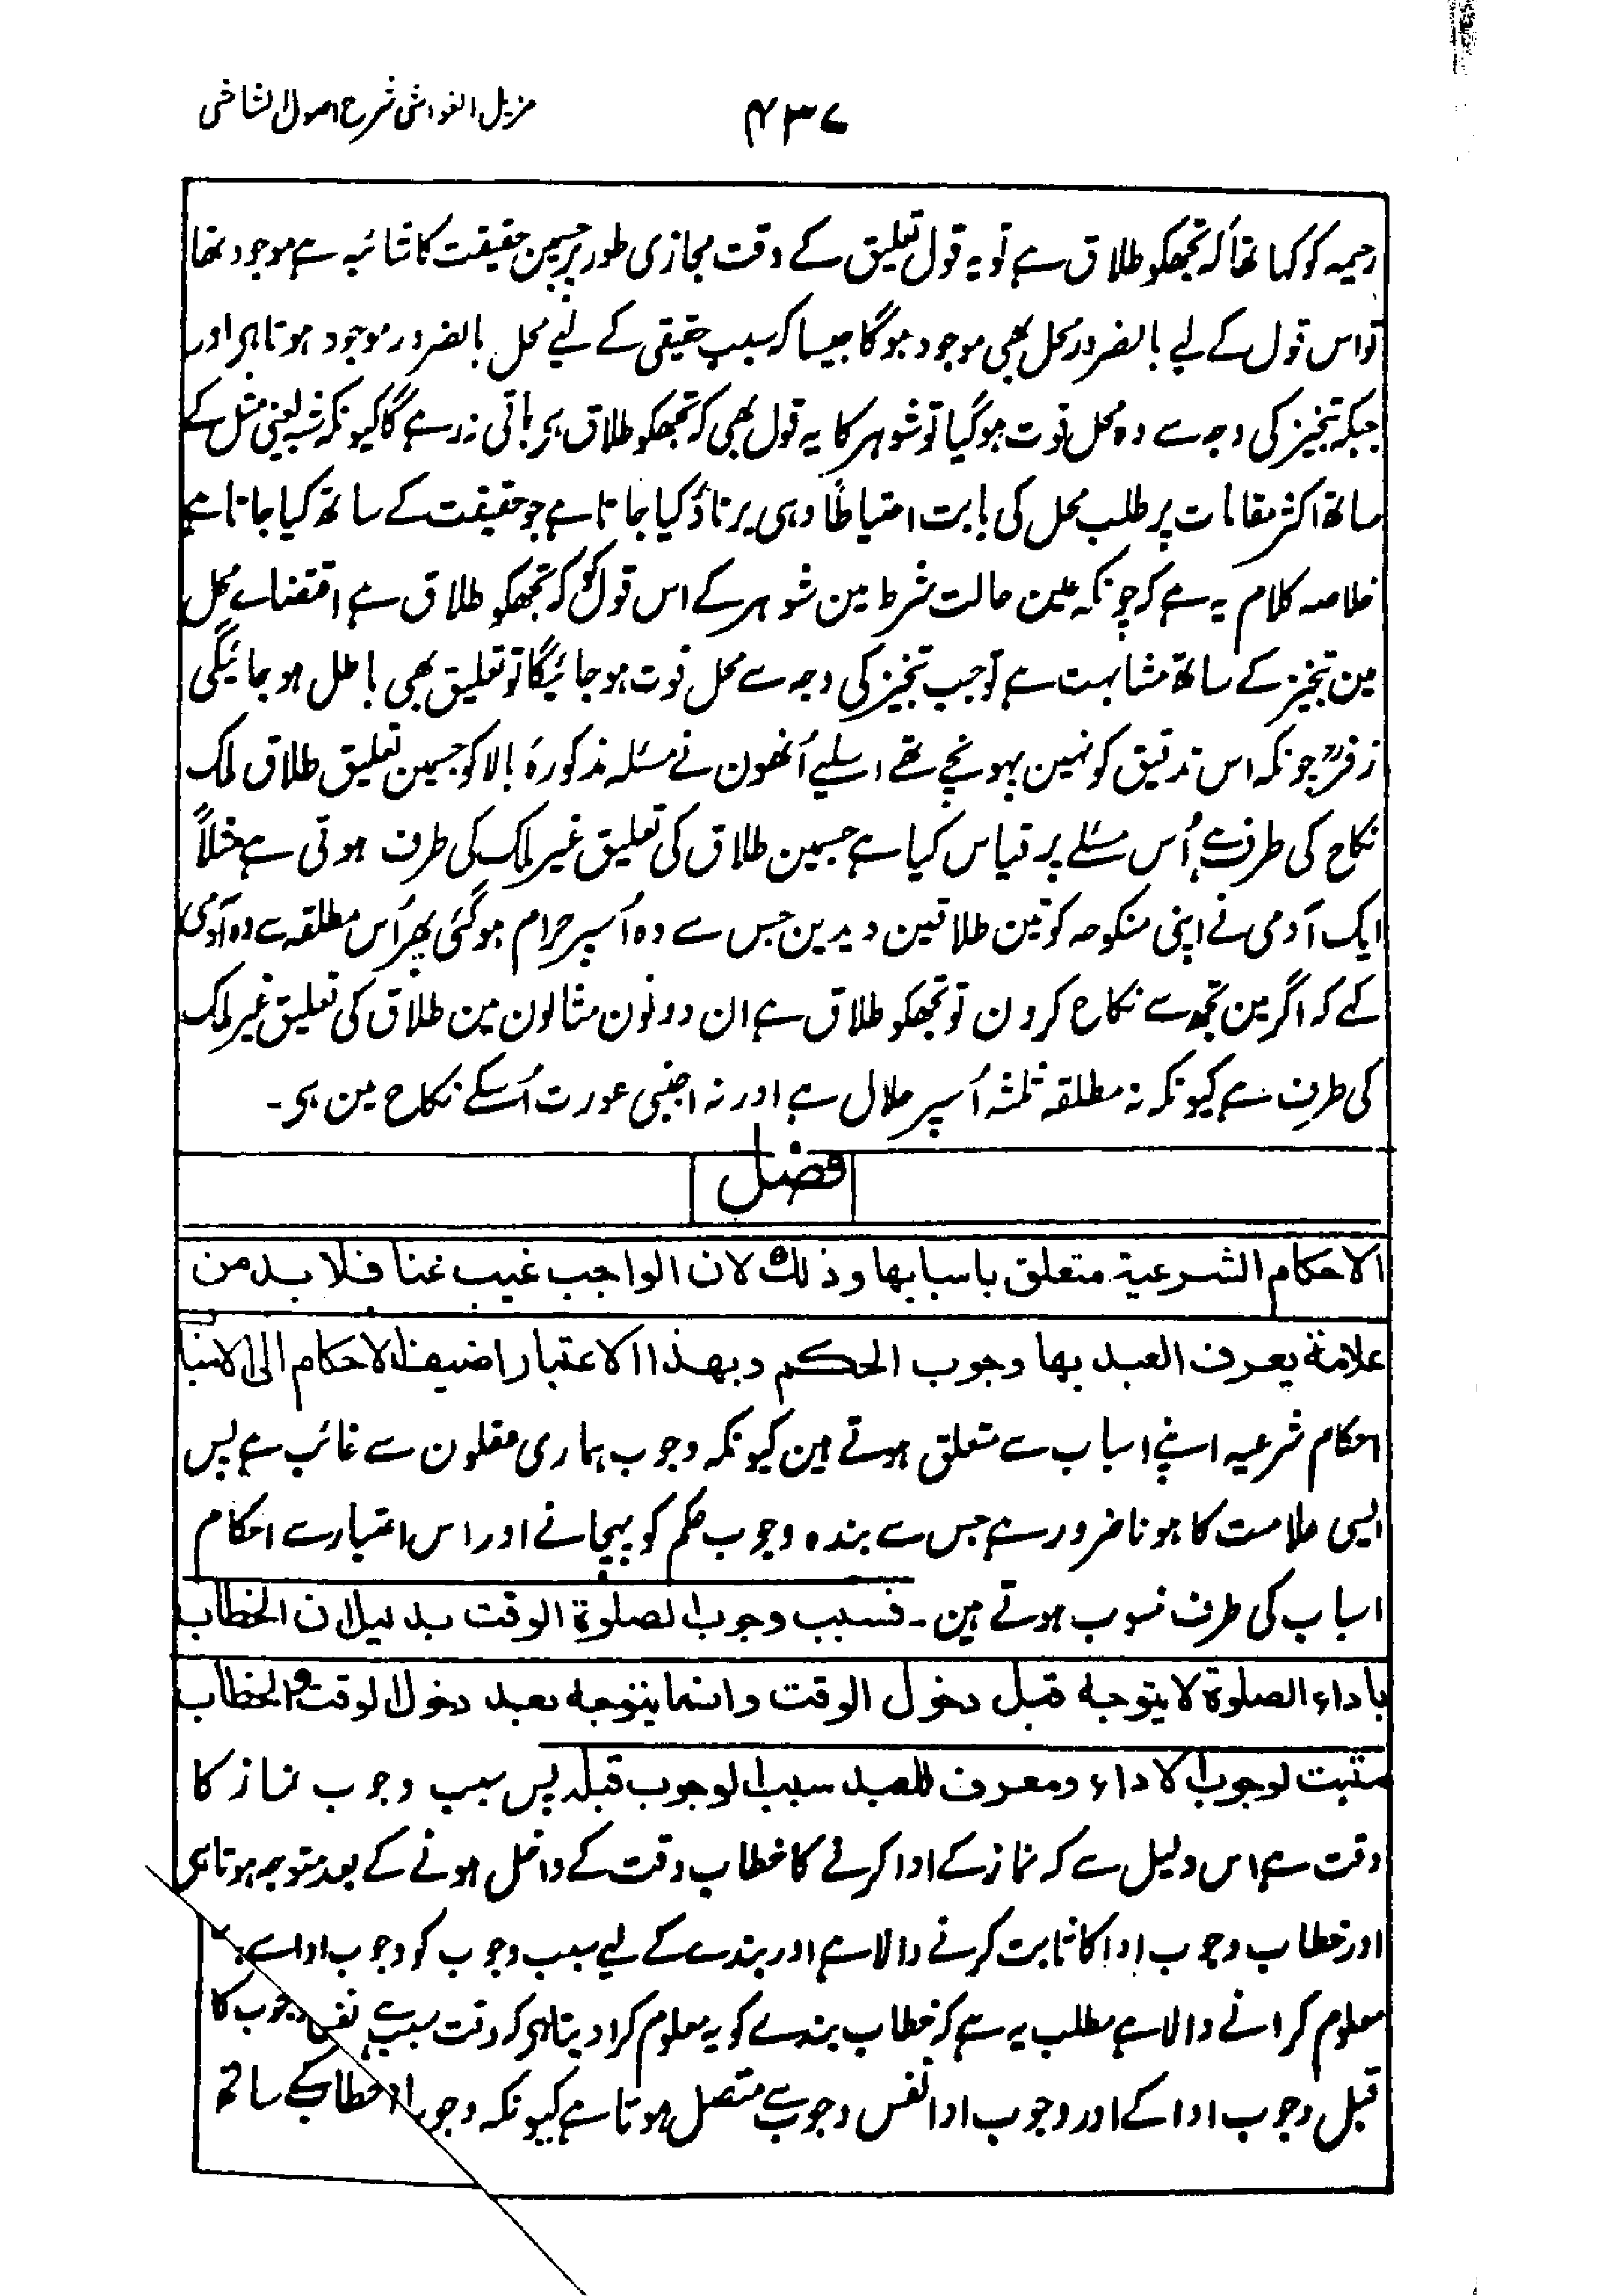 مزیل الغواشی شرح اصول الشاشی
۴۳۷
رحیمہ کو کہا تھا کہ تجھکو طلاق ہے تو یہ قول تعلیق کے وقت مجازی طور پر جسمین حقیقت کا شائبہ ہے موجود تھا
تو اس قول کے لیے بالضرور محل بھی موجود ہو گا جیسا کہ سبب حقیقی کے لیے محل بالضرور موجود ہوتا ہی اور
جبکہ تنجیز کی وجہ سے وہ محل فوت ہو گیا تو شوہر کا یہ قول بھی کہ تجھکو طلاق ہی باقی نہ رہے گا کیونکہ شبہ یعنی مثل کے
ساتھ اکثر مقامات پر طلب محل کی بابت احتیاطًا وہی برتاؤ کیا جاتا ہے جو حقیقت کے ساتھ کیا جاتا ہے
خلاصہ کلام یہ ہے کہ چونکہ عین حالت شرط مین شوہر کے اس قول کو کہ تجھکو طلاق ہے اقتضاے محل
مین تنجیز کے ساتھ مشابہت ہے تو جب تنجیز کی وجہ سے محل فوت ہو جائیگا تو تعلیق بھی باطل ہو جائیگی
زفرؒ چونکہ اس تدقیق کو نہین پہونچے تھے اسلیے اُنھون نے مسئلہ مذکورۂ بالا کو جسمین تعلیق طلاق ملک
نکاح کی طرف ہے اُس مسئلے پر قیاس کیا ہے جسمین طلاق کی تعلیق غیر ملک کی طرف ہوتی ہے مثلاً
ایک آدمی نے اپنی منکوحہ کو تین طلاقین دیدین جس سے وہ اُسپر حرام ہو گئی پھر اُس مطلقہ سے وہ آدمی
کہے کہ اگر مین تجھ سے نکاح کرون تو تجھکو طلاق ہے ان دونون مثالون مین طلاق کی تعلیق غیر ملک
کی طرف ہے کیونکہ نہ مطلقہ ثلثہ اُسپر حلال ہے اور نہ اجنبی عورت اُسکے نکاح مین ہی ۔
فصل
الاحکام الشرعیة متعلق باسبابها وذلك لان الواجب غیب عنا فلا بد من
علامة یعرف العبد بها وجوب الحکم وبهذا الاعتبار اضیف الاحکام الی الاسباب
احکام شرعیہ اپنے اسباب سے متعلق ہوتے ہین کیونکہ وجوب ہماری عقلون سے غائب ہے پس
ایسی علامت کا ہونا ضرور ہے جس سے بندہ وجوب حکم کو پہچانے اور اس اعتبار سے احکام
اسباب کی طرف منسوب ہوتے ہین ۔ فسبب وجوب الصلوة الوقت بدلیل ان الخطاب
باداء الصلوة لا یتوجه قبل دخول الوقت وانما یتوجه بعد دخول الوقت والخطاب
مثبت لوجوب الاداء ومعرف للعبد سبب الوجوب قبله پس سبب وجوب نماز کا
وقت ہے اس دلیل سے کہ نماز کے ادا کرنے کا خطاب وقت کے داخل ہونے کے بعد متوجہ ہوتا ہی
اور خطاب وجوب ادا کا ثابت کرنے والا ہے اور بندے کے لیے سبب وجوب کو وجوب ادا سے
معلوم کرانے والا ہے مطلب یہ ہے کہ خطاب بندے کو یہ معلوم کرا دیتا ہی کہ وقت سبب ہے نفس وجوب کا
قبل وجوب ادا کے اور وجوب ادا نفس وجوب سے متصل ہوتا ہے کیونکہ وجوب ادا خطاب کے ساتھ